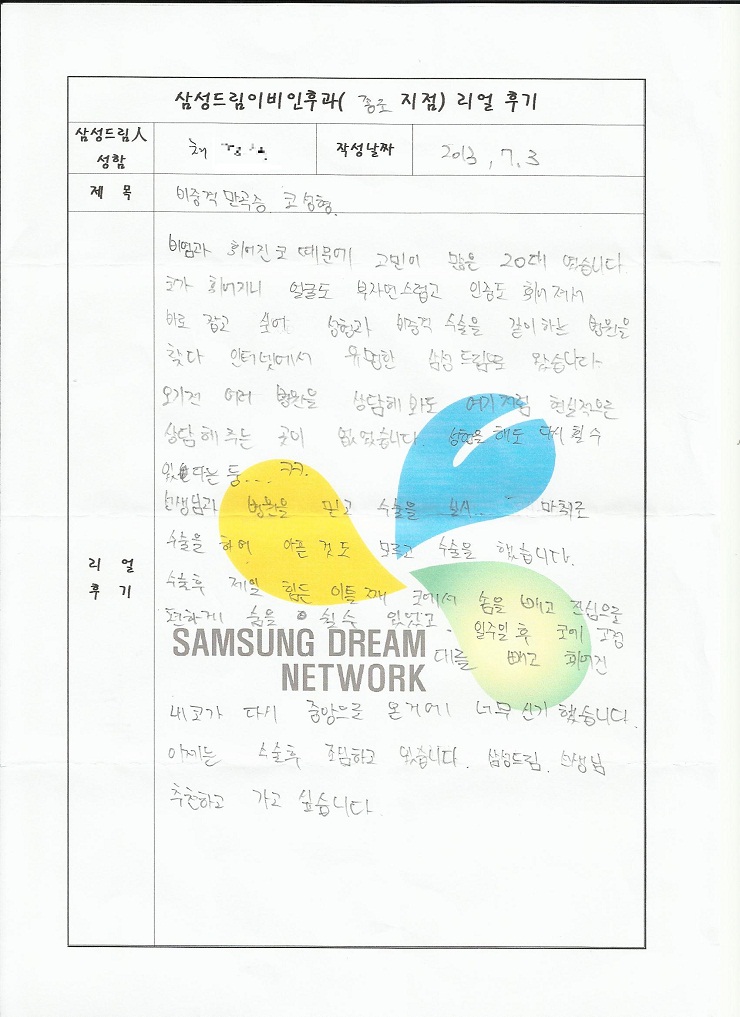 삼성드림이비인후과( 종로 지점) 리얼 후기
삼성드림人 성함
채
작성날짜
2013, 7. 3
제 목
비중격 만곡증. 코성형.
리 얼
후 기
비염과 휘어진 코 때문에 고민이 많은 20대 였습니다.
코가 휘어지니 얼굴도 부자연스럽고 인중도 휘어져서
바로 잡고 싶어 성형과 비중격 수술을 같이하는 병원을
찾다 인터넷에서 유명한 삼성드림으로 왔습니다.
오기전 여러 병원을 상담해 봐도 여기처럼 현실적으로
상담해주는 곳이 없었습니다. 성형을 해도 다시 휠 수
있다는 둥.... ㅋㅋ.
선생님과 병원을 믿고 수술을 마취로
수술을 하여 아픈 것도 모르고 수술을 했습니다.
수술후 제일 힘든 이틀째 코에서 솜을 빼고 진심으로
편하게 숨을 쉴수 있었고 일주일 후 코에 고정
대를 빼고 휘어진
SAMSUNG DREAM
NETWORK
내코가 다시 중앙으로 온거에 너무 신기했습니다.
이제는 수술후 조심하고 있습니다. 삼성드림. 선생님
추천하고 가고 싶습니다.